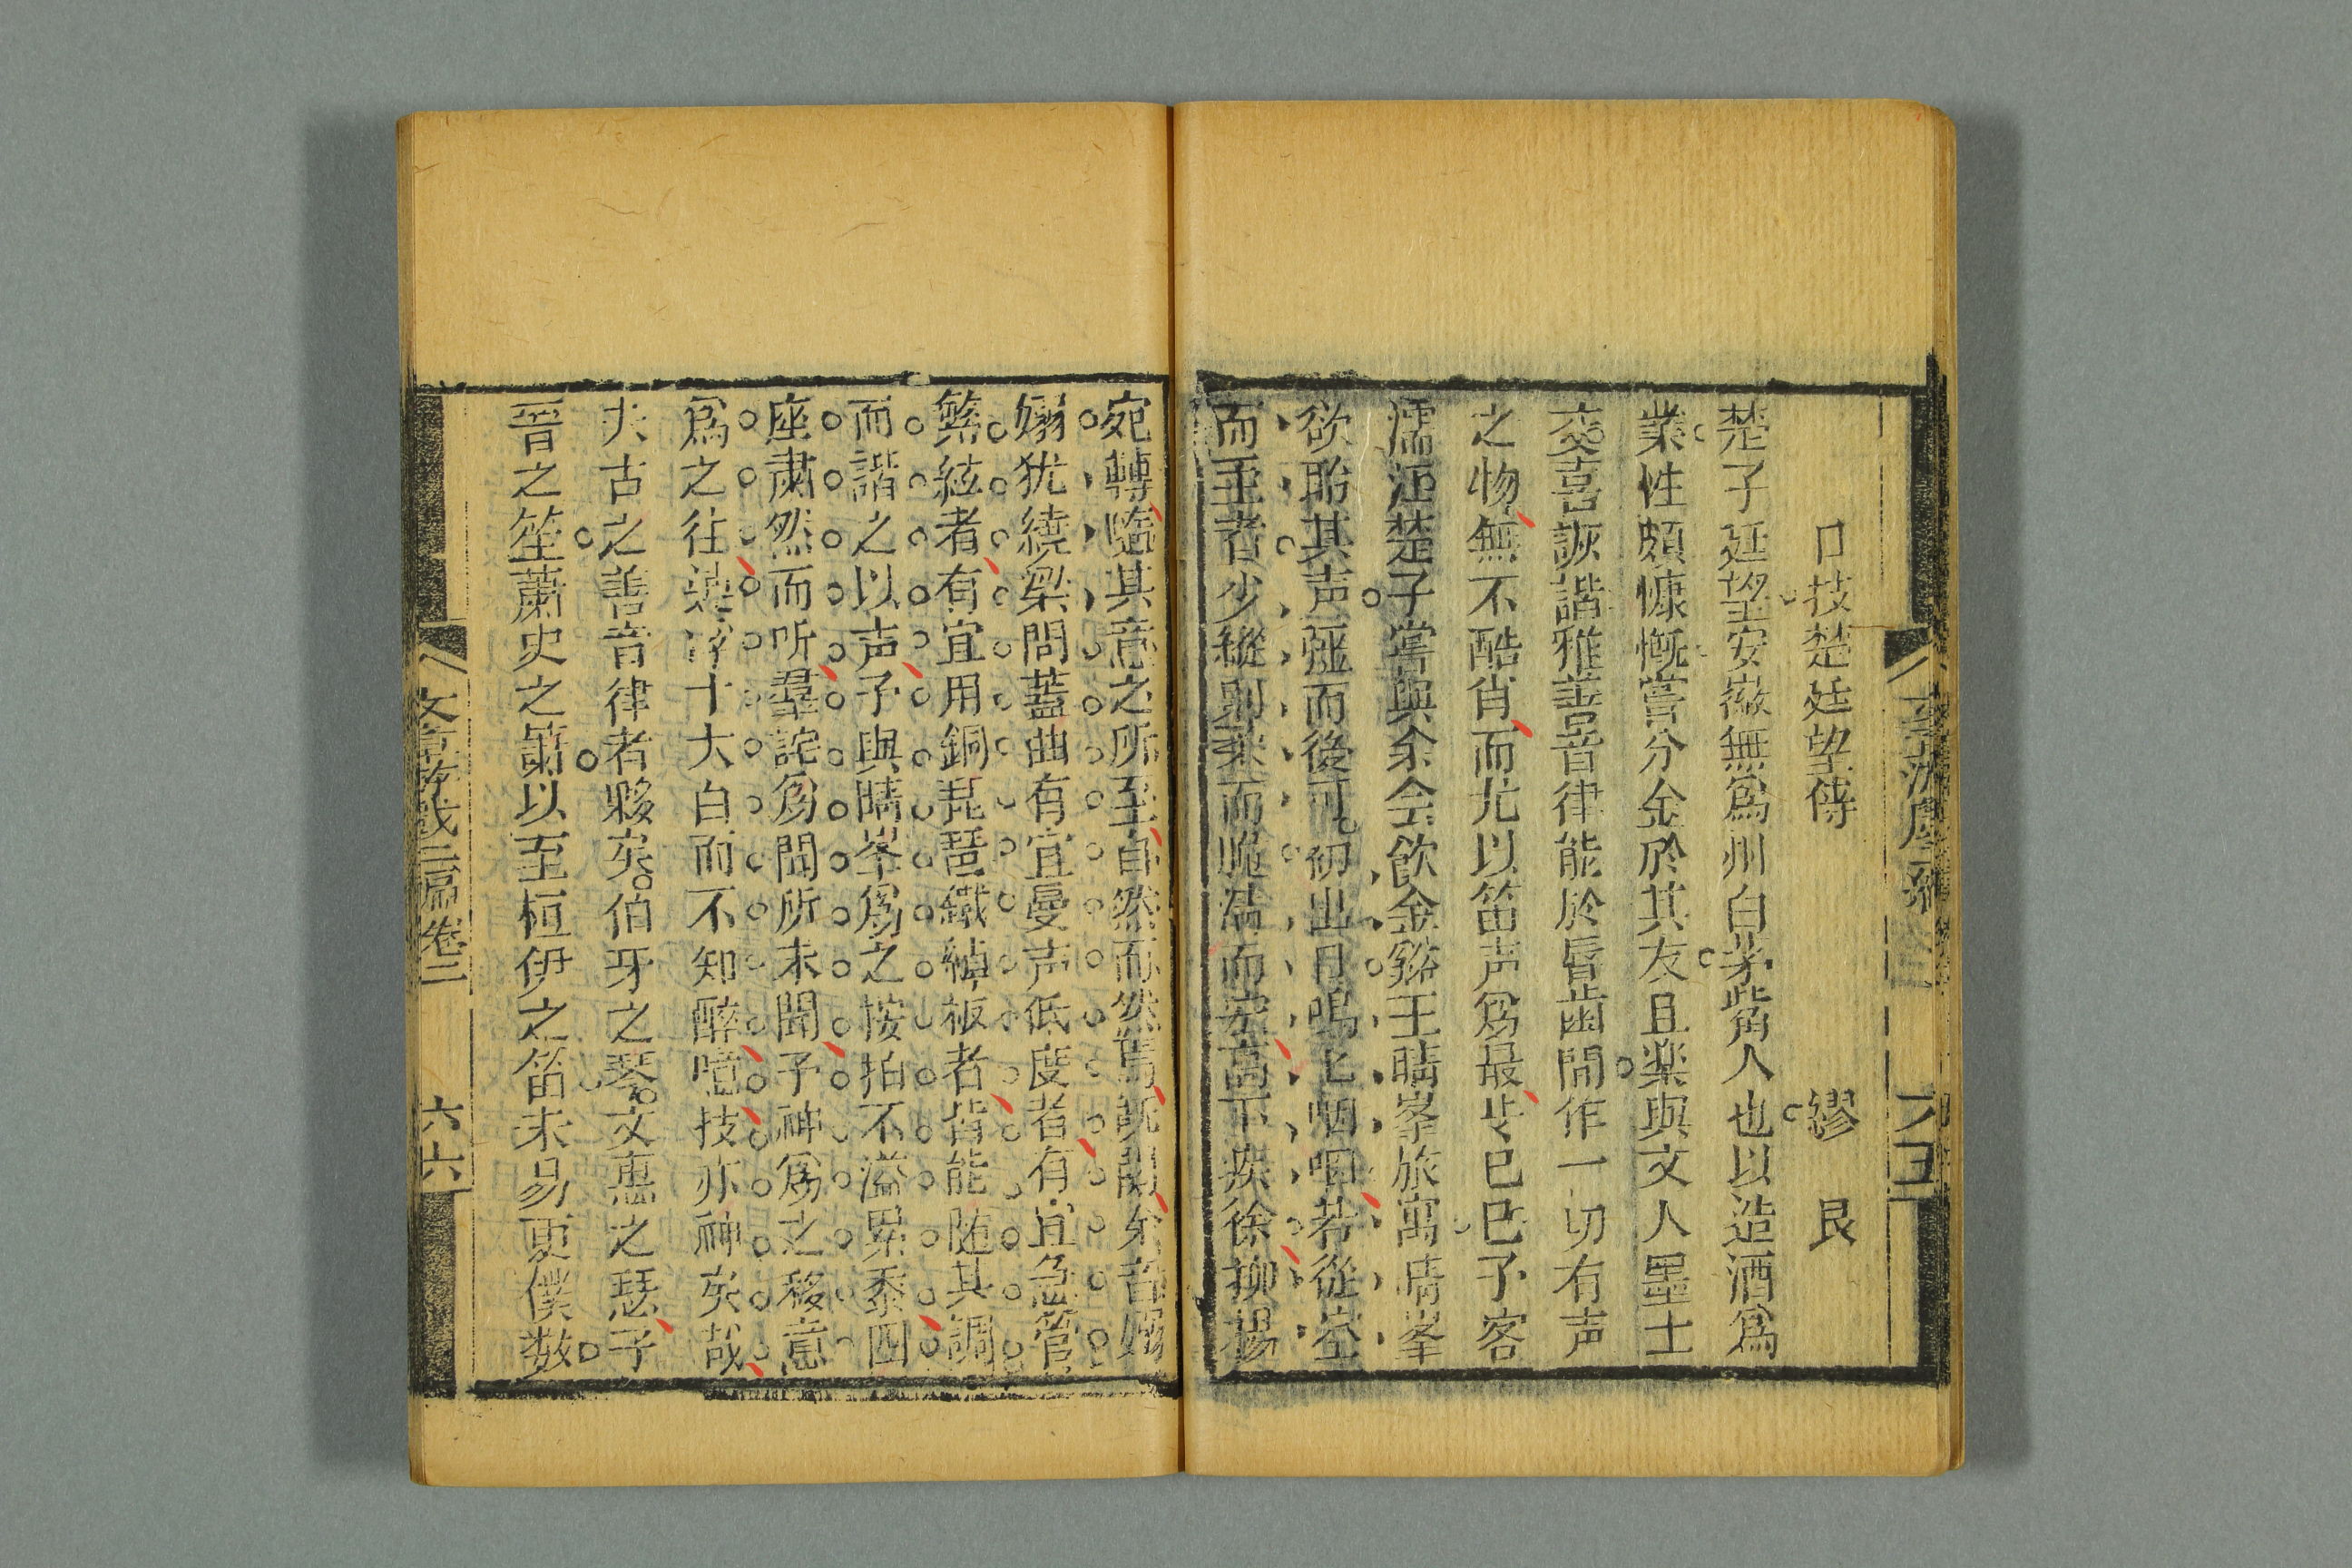 口技楚廷望傳 繆艮
楚子廷望安徽無爲州白茅觜人也以造酒爲
業性頗慷慨嘗分金於其友且樂與文人墨士
交喜詼諧雅善音律能於唇齒間作一切有声
之物無不酷肖而尤以笛声爲最歩已巳予客
濡江楚子嘗與余会飲金谿王晴峯旅寓晴峯
欲貽其声而後可初出月鳴七咽咽若從空
而者少縱則來而脆濡而高下疾徐抑揚
宛轉隨其意之所至自然而然焉既闋矣音嫋
嫋犹繞梁問蓋曲有宜曼声低度者有宜急管
繁絃者有宜用銅琵琶鐵綽板者皆能随其調
而諧之以声予與晴峯爲之按拍不溢累黍四
座肅然而听羣詫爲聞所未聞予神爲之移意
爲之往遂浮十大白而不知醉噫技亦神矣哉
夫古之善音律者夥矣伯牙之琴文惠之瑟子
晋之笙蕭史之簫以至桓伊之笛未易更僕数
文章游戲二編卷二 六六